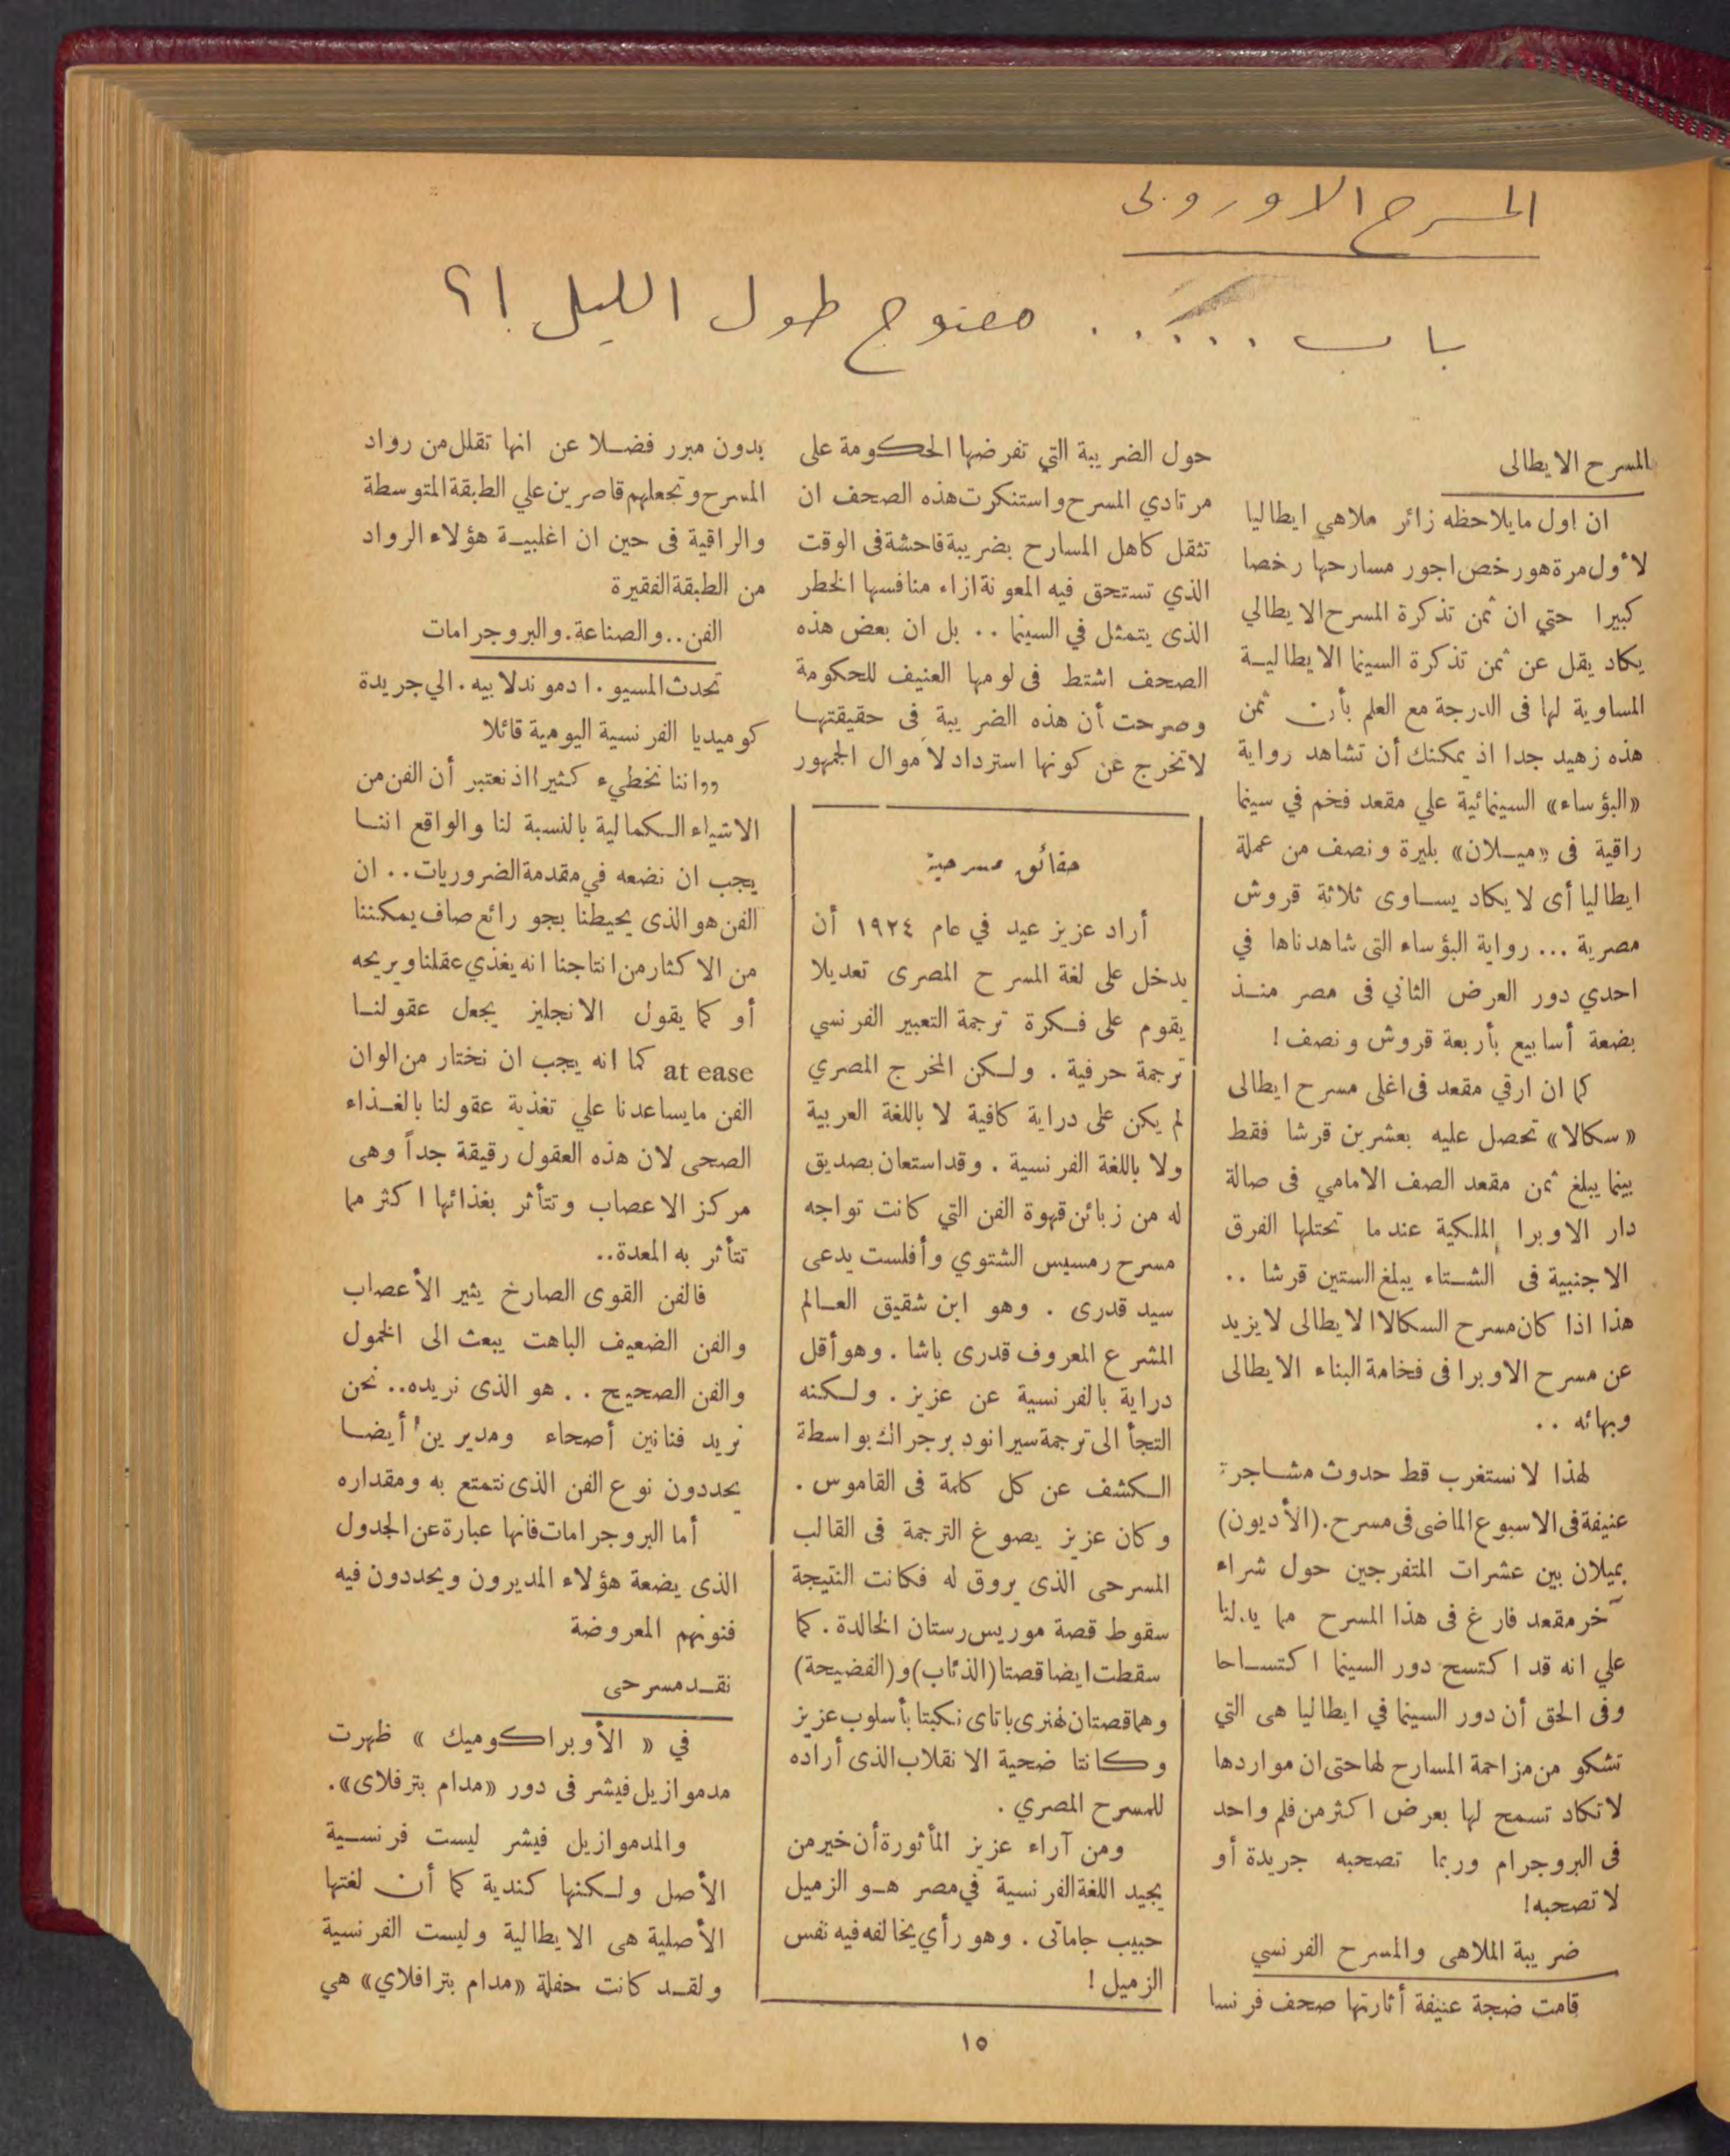 المسرح الاوروبى
باب ..... مفتوح طول الليل !؟
المسرح الايطالى
ان اول مايلاحظه زائر ملاهي ايطاليا
لأول مرة هو رخص اجور مسارحها رخصا
كبيرا حتي ان ثمن تذكرة المسرح الايطالي
يكاد يقل عن ثمن تذكرة السينما الايطاليـة
المساوية لها فى الدرجة مع العلم بأن ثمن
هذه زهيد جدا اذ يمكنك أن تشاهد رواية
«البؤساء» السينمائية علي مقعد فخم في سينما
راقية فى «ميـلان» بليرة ونصف من عملة
ايطاليا أى لا يكاد يسـاوى ثلاثة قروش
مصرية ... رواية البؤساء التى شاهدناها في
احدي دور العرض الثاني فى مصر منـذ
بضعة أسابيع بأربعة قروش ونصف !
كما ان ارقي مقعد فى اغلى مسرح ايطالى
«سكالا» تحصل عليه بعشرين قرشا فقط
بينما يبلغ ثمن مقعد الصف الامامي فى صالة
دار الاوبرا الملكية عندما تحتلها الفرق
الاجنبية فى الشـتاء يبلغ الستين قرشا ..
هذا اذا كان مسرح السكالا الايطالى لا يزيد
عن مسرح الاوبرا فى فخامة البناء الايطالى
وبهائه ..
لهذا لا نستغرب قط حدوث مشـاجرة
عنيفة فى الاسبوع الماضى فى مسرح.(الأديون)
بميلان بين عشرات المتفرجين حول شراء
آخر مقعد فارغ فى هذا المسرح مما يدلنا
علي انه قد اكتسح دور السينما اكتسـاحا
وفى الحق أن دور السينما في ايطاليا هى التي
تشكو من مزاحمة المسارح لها حتى ان مواردها
لا تكاد تسمح لها بعرض اكثر من فلم واحد
فى البروجرام وربما تصحبه جريدة أو
لا تصحبه!
ضريبة الملاهى والمسرح الفرنسي
قامت ضجة عنيفة أثارتها صحف فرنسا
حول الضريبة التي تفرضها الحكومة على
مرتادي المسرح واستنكرت هذه الصحف ان
تثقل كاهل المسارح بضريبة فاحشة فى الوقت
الذي تستحق فيه المعونة ازاء منافسها الخطر
الذى يتمثل في السينما .. بل ان بعض هذه
الصحف اشتط فى لومها العنيف للحكومة
وصرحت أن هذه الضريبة فى حقيقتهـا
لا تخرج عن كونها استرداد لأموال الجمهور
حقائق مسرحية
أراد عزيز عيد في عام ١٩٢٤ أن
يدخل على لغة المسرح المصرى تعديلا
يقوم على فـكرة ترجمة التعبير الفرنسي
ترجمة حرفية . ولـكن المخرج المصري
لم يكن على دراية كافية لا باللغة العربية
ولا باللغة الفرنسية . وقد استعان بصديق
له من زبائن قهوة الفن التي كانت تواجه
مسرح رمسيس الشتوي وأفلست يدعى
سيد قدرى . وهو ابن شقيق العـالم
المشرع المعروف قدرى باشا . وهو أقل
دراية بالفرنسية عن عزيز . ولـكنه
التجأ الى ترجمة سيرانو د برجراك بواسطة
الـكشف عن كل كلمة فى القاموس .
وكان عزيز يصوغ الترجمة فى القالب
المسرحى الذى يروق له فكانت النتيجة
سقوط قصة موريس رستان الخالدة . كما
سقطت ايضا قصتا (الذئاب) و (الفضيحة)
وهما قصتان لهنرى باتاى نكبتا بأسلوب عزيز
وكانتا ضحية الانقلاب الذى أراده
للمسرح المصري .
ومن آراء عزيز المأثورة أن خير من
يجيد اللغة الفرنسية في مصر هـو الزميل
حبيب جاماتى . وهو رأي يخالفه فيه نفس
الزميل !
بدون مبرر فضـلا عن انها تقلل من رواد
المسرح وتجعلهم قاصرين علي الطبقة المتوسطة
والراقية فى حين ان اغلبيـة هؤلاء الرواد
من الطبقة الفقيرة
الفن.. والصناعة. والبروجرامات
تحدث المسيو . ادموند لابيه . الي جريدة
كوميديا الفرنسية اليومية قائلا
,,اننا نخطيء كثيرا اذ نعتبر أن الفن من
الاشياء الـكمالية بالنسبة لنا والواقع اننـا
يجب ان نضعه في مقدمة الضروريات .. ان
الفن هو الذى يحيطنا بجو رائع صاف يمكننا
من الاكثار من انتاجنا انه يغذي عقلنا ويريحه
أو كما يقول الانجليز يجعل عقولنـا
at ease كما انه يجب ان نختار من الوان
الفن ما يساعدنا علي تغذية عقولنا بالغـذاء
الصحى لان هذه العقول رقيقة جداً وهى
مركز الاعصاب وتتأثر بغذائها اكثر مما
تتأثر به المعدة..
فالفن القوى الصارخ يثير الأعصاب
والفن الضعيف الباهت يبعث الى الخمول
والفن الصحيح .. هو الذى نريده.. نحن
نريد فنانين أصحاء ومديرين أيضـا
يحددون نوع الفن الذى نتمتع به ومقداره
أما البروجرامات فانها عبارة عن الجدول
الذى يضعة هؤلاء المديرون ويحددون فيه
فنونهم المعروضة
نقـد مسرحى
في « الأوبراكوميك » ظهرت
مدموازيل فيشر فى دور «مدام بترفلاى».
والمدموازيل فيشر ليست فرنسـية
الأصل ولـكنها كندية كما أن لغتها
الأصلية هى الايطالية وليست الفرنسية
ولقـد كانت حفلة «مدام بترافلاي» هي
١٥